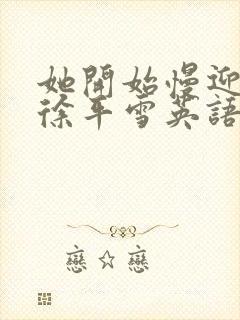 她開始慢迎
徐平雪英語
戀☆戀